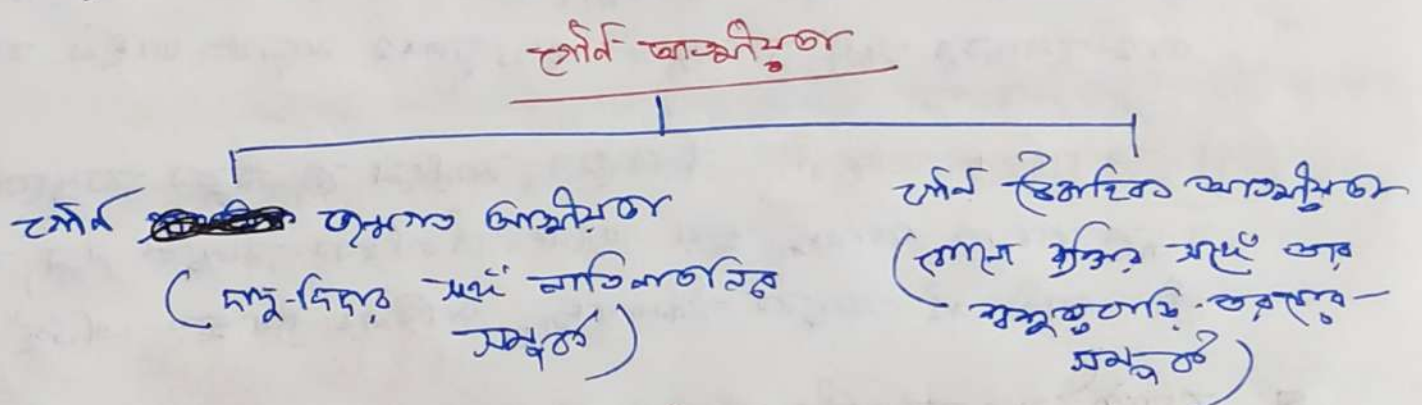 গৌণ আত্মীয়তা
গৌণ জন্মগত আত্মীয়তা
(দাদু-দিদার সঙ্গে নাতিনাতনির
সম্পর্ক)
গৌণ বৈবাহিক আত্মীয়তা
(কোনো ব্যক্তির সঙ্গে তার
শ্বশুরবাড়ি তরফের
সম্পর্ক)